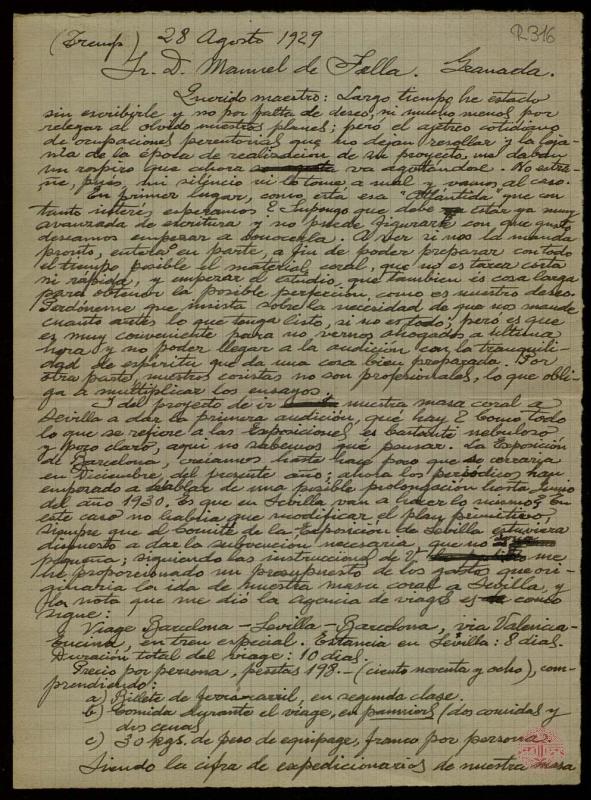 R 316
(Tremp) 28 Agosto 1929
Sr. D. Manuel de Falla. Granada.
Querido maestro: Largo tiempo he estado
sin escribirle y no por falta de deseo, ni mucho menos por
relegar al olvido nuestros planes; pero el ajetreo cotidiano
de ocupaciones perentorias que no dejan resollar y la leja-
nia de la época de realizacion de su proyecto, me daban
un respiro que ahora va agotandose. No extra-
ñe, pues, mi silencio ni lo tome a mal y vamos al caso.
En primer lugar, como está esa "Atlántida" que con
tanto interés esperamos? Supongo que debe estar ya muy
avanzada de escritura y no puede figurarse con que gusto
deseamos empezar a conocerla. A ver si nos la manda
pronto, entera o en parte, a fin de poder preparar con todo
el tiempo posible el material coral, que no es tarea corta
ni rápida, y empezar el estudio, que tambien es cosa larga
para obtener la posible perfeccion, como es nuestro deseo.
Perdóneme que insista sobre la necesidad de que nos mande
cuanto antes lo que tenga listo, si no es todo; pero es que
es muy conveniente para no vernos ahogados a última
hora y no poder llegar a la audición con la tranquili-
dad de espiritu que da una cosa bien preparada. Por
otra parte, nuestros coristas no son profesionales, lo que obli-
ga a multiplicar los ensayos.
Y del proyecto de ir nuestra masa coral a
Sevilla a dar la primera audición, que hay? Como todo
lo que se refiere a las Exposiciones es bastante nebuloso
y poco claro, aqui no sabemos que pensar. La Exposición
de Barcelona, creiamos hasta hace poco que se cerraria
en Diciembre del presente año; ahora los periódicos han
empezado a hablar de una posible prolongación hasta Junio
del año 1930. Es que en Sevilla van a hacer lo mismo? En
este caso no habria que modificar el plan primitivo
siempre que el Comité de la Exposición de Sevilla estuviera
dispuesto a dar la subvención necesaria que no
pequeña; siguiendo las instrucciones de V. me
he proporcionado un presupuesto de los gastos que ori-
ginaria la ida de nuestra masa coral a Sevilla, y
la nota que me dió la agencia de viages es como
sigue:
Viage Barcelona-Sevilla-Barcelona, via Valencia-
Encina, en tren especial. Estancia en Sevilla: 8 dias.
Duración total del viage: 10 dias.
Precio por persona, pesetas 198.- (ciento noventa y ocho), com-
prendiendo:
a) Billete de ferro-carril, en segunda clase.
b) Comida durante el viage, en panniers (dos comidas y
dos cenas
c) 30 kgs. de peso de equipage, franco por persona.
Siendo la cifra de expedicionarios de nuestra masa